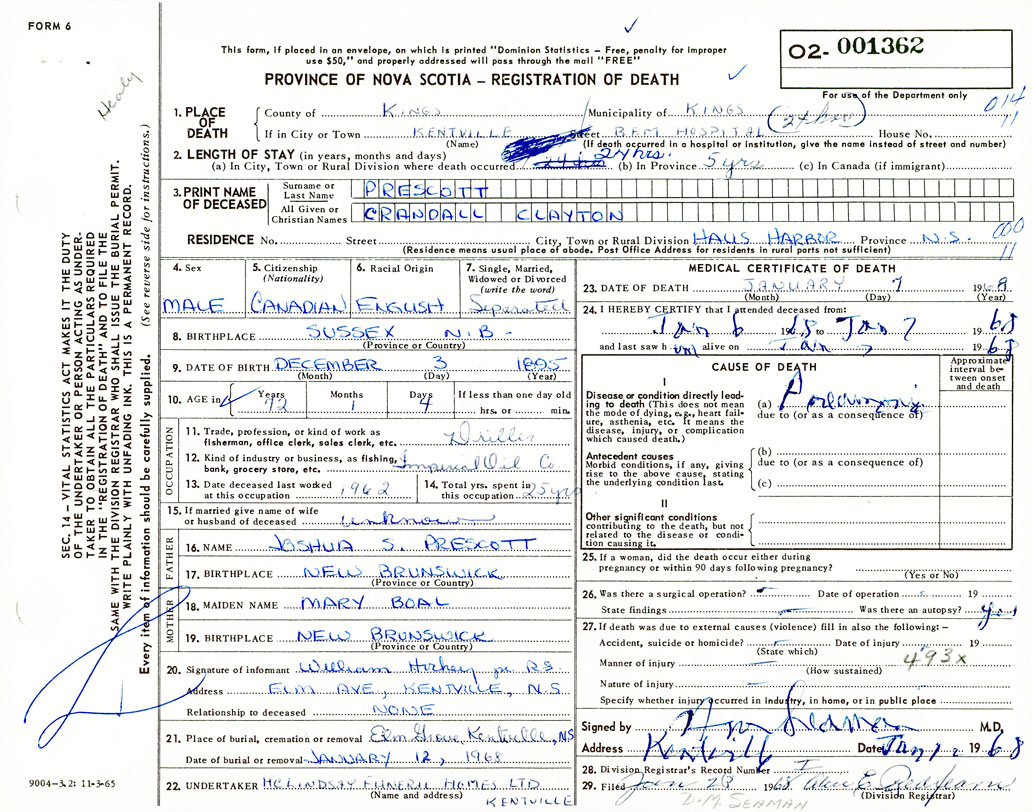 FORM 6
This form, if placed in an envelope, on which is printed "Dominion Statistics – Free, penalty for improper
use $50," and properly addressed will pass through the mail "FREE"
PROVINCE OF NOVA SCOTIA – REGISTRATION OF DEATH
O2- 001362
For use of the Department only
014
11
Healy
1. PLACE OF DEATH
County of KINGS Municipality of KINGS (24 hrs)
If in City or Town KENTVILLE Street B.F.M HOSPITAL House No.
(Name) (If death occurred in a hospital or institution, give the name instead of street and number)
2. LENGTH OF STAY (in years, months and days) 24 hrs.
(a) In City, Town or Rural Division where death occurred (b) In Province 5 yrs (c) In Canada (if immigrant)
3. PRINT NAME OF DECEASED
Surname or Last Name PRESCOTT
All Given or Christian Names CRANDALL CLAYTON
000
11
RESIDENCE No. Street City, Town or Rural Division HALLS HARBOR Province N.S.
(Residence means usual place of abode. Post Office Address for residents in rural parts not sufficient)
4. Sex MALE
5. Citizenship (Nationality) CANADIAN
6. Racial Origin ENGLISH
7. Single, Married, Widowed or Divorced (write the word) Separated
8. BIRTHPLACE SUSSEX N.B-
(Province or Country)
9. DATE OF BIRTH DECEMBER 3 1895
(Month) (Day) (Year)
10. AGE in Years 72 Months 1 Days 4 If less than one day old
hrs. or min.
OCCUPATION
11. Trade, profession, or kind of work as
fisherman, office clerk, sales clerk, etc. Driller
12. Kind of industry or business, as fishing,
bank, grocery store, etc. Imperial Oil Co
13. Date deceased last worked
at this occupation 1962
14. Total yrs. spent in
this occupation 25 yrs
15. If married give name of wife
or husband of deceased unknown
FATHER
16. NAME JOSHUA S. PRESCOTT
17. BIRTHPLACE NEW BRUNSWICK
(Province or Country)
MOTHER
18. MAIDEN NAME MARY BOAL
19. BIRTHPLACE NEW BRUNSWICK
(Province or Country)
20. Signature of informant William
Address ELM AVE, KENTVILLE, N.S
Relationship to deceased NONE
21. Place of burial, cremation or removal Elm Grove, Kentville, NS
Date of burial or removal JANUARY 12, 1968
22. UNDERTAKER McLINDSAY FUNERAL HOMES LTD
(Name and address) KENTVILLE
MEDICAL CERTIFICATE OF DEATH
23. DATE OF DEATH JANUARY 7 1968
(Month) (Day) (Year)
24. I HEREBY CERTIFY that I attended deceased from:
Jan 6 1968 to Jan 7 1968
and last saw him alive on Jan 7 1968
CAUSE OF DEATH
Approximate interval between onset and death
I
Disease or condition directly leading
to death (This does not mean
the mode of dying, e.g., heart failure,
asthenia, etc. It means the
disease, injury, or complication
which caused death.)
(a) Pneumonia
due to (or as a consequence of)
Antecedent causes
Morbid conditions, if any, giving
rise to the above cause, stating
the underlying condition last.
(b)
due to (or as a consequence of)
(c)
II
Other significant conditions
contributing to the death, but not
related to the disease or condition
causing it.
25. If a woman, did the death occur either during
pregnancy or within 90 days following pregnancy?
(Yes or No)
26. Was there a surgical operation? Date of operation 19
State findings Was there an autopsy? yes
27. If death was due to external causes (violence) fill in also the following:–
Accident, suicide or homicide? Date of injury 19
(State which)
Manner of injury 493x
(How sustained)
Nature of injury
Specify whether injury occurred in Industry, in home, or in public place
Signed by Seaman M.D.
Address Kentville Date Jan 1968
28. Division Registrar's Record Number
29. Filed Jan 20 1968
(Division Registrar)
D.M. SEAMAN
SEC. 14 – VITAL STATISTICS ACT MAKES IT THE DUTY
OF THE UNDERTAKER OR PERSON ACTING AS UNDERTAKER
TO OBTAIN ALL THE PARTICULARS REQUIRED
IN THE "REGISTRATION OF DEATH" AND TO FILE THE
SAME WITH THE DIVISION REGISTRAR WHO SHALL ISSUE THE BURIAL PERMIT.
WRITE PLAINLY WITH UNFADING INK. THIS IS A PERMANENT RECORD.
Every item of information should be carefully supplied. (See reverse side for instructions.)
9004–3.2: 11-3-65